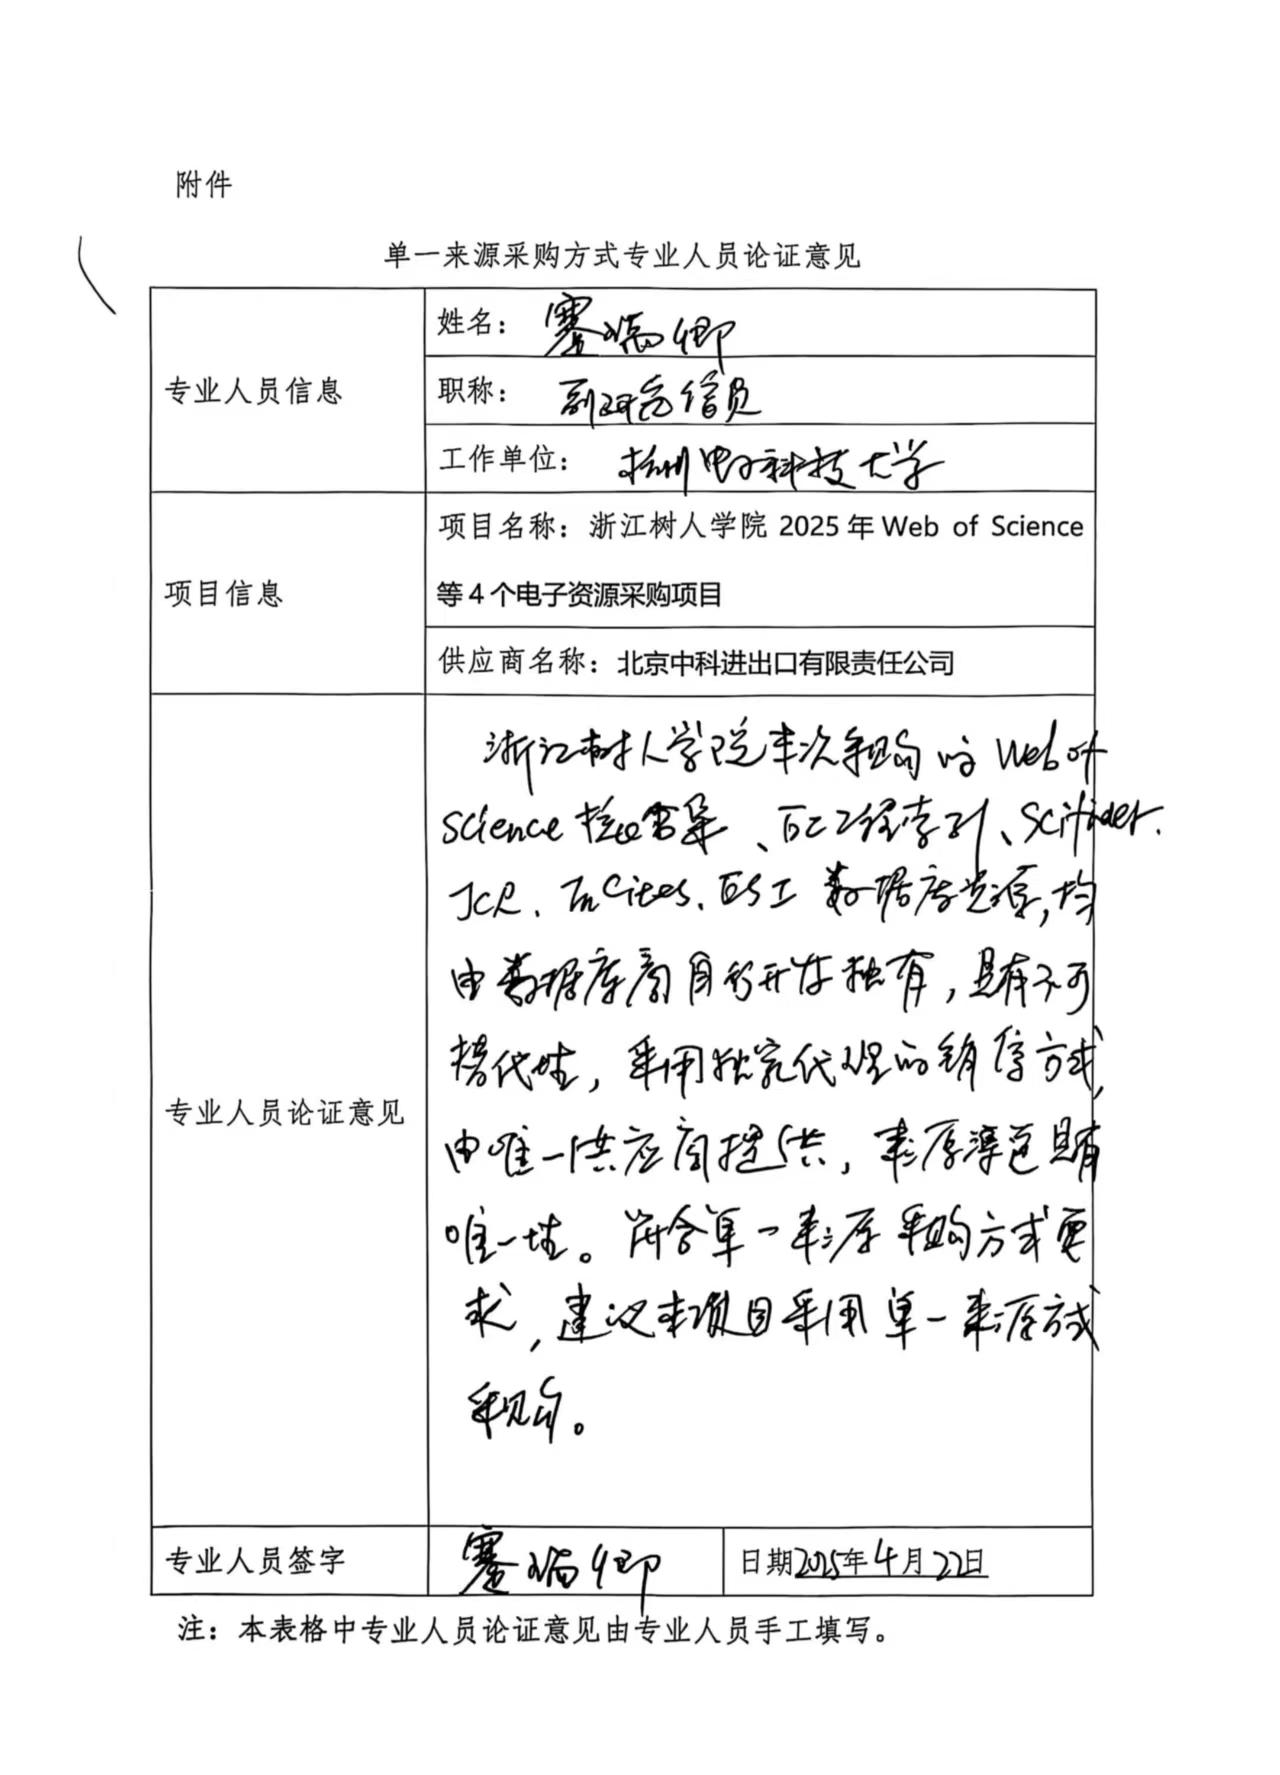 附件
单一来源采购方式专业人员论证意见
专业人员信息
姓名：蹇瑞卿
职称：副研究馆员
工作单位：杭州电子科技大学
项目信息
项目名称：浙江树人学院 2025 年 Web of Science
等 4 个电子资源采购项目
供应商名称：北京中科进出口有限责任公司
专业人员论证意见
浙江树人学院本次采购的 Web of
Science 核心合集、EI工程索引、Scifinder.
JCR、InCites、ESI 数据库资源，均
由数据库商自行开发独有，具有不可
替代性，采用独家代理的销售方式，
由唯一供应商提供，来源渠道具有
唯一性。符合单一来源采购方式要
求，建议本项目采用单一来源方式
采购。
专业人员签字
蹇瑞卿
日期2025年4月22日
注：本表格中专业人员论证意见由专业人员手工填写。